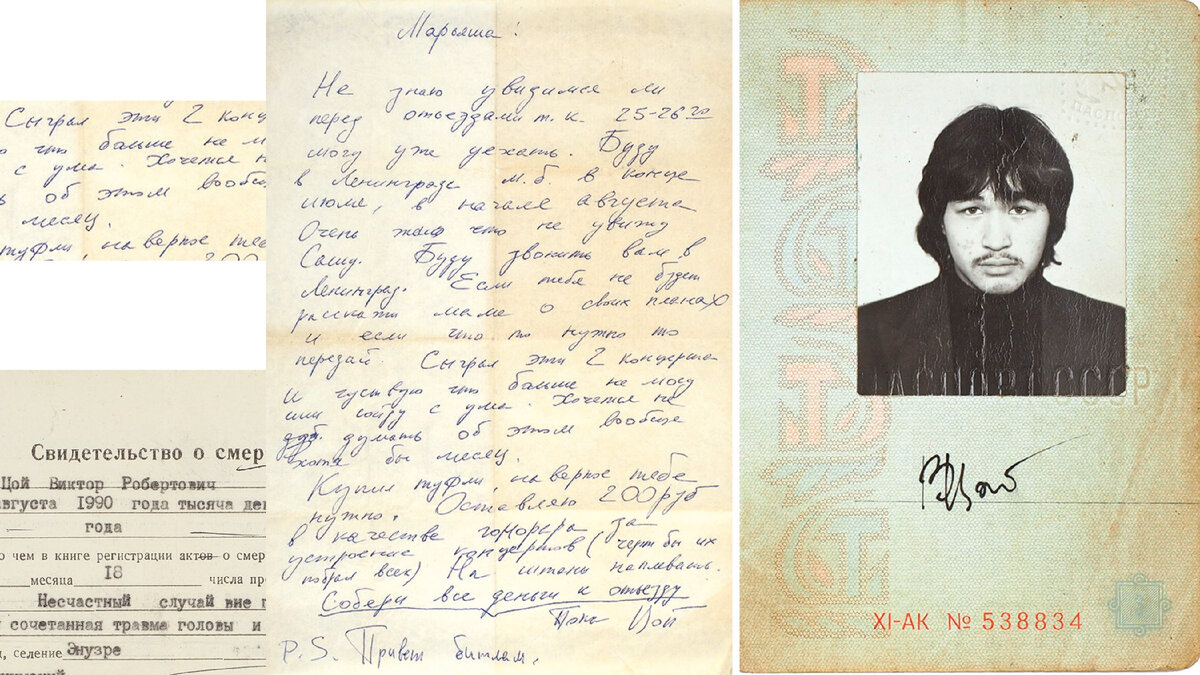 Сыграл эти 2 конц
что больше не м
с ума. Хочется н
об этом вообще
месяц.
туфли, наверное теб
200
Свидетельство о смер
Цой Виктор Робертович
августа 1990 года тысяча де
года
о чем в книге регистрации актов о смер
месяца 18 числа пр
Несчастный случай вне п
сочетанная травма головы и
селение Энузре
Марьяша!
Не знаю увидимся ли
перед отъездами т.к. 25-26го
могу уже уехать. Буду
в Ленинграде м.б. в конце
июле, в начале августа
Очень жаль что не увижу
Сашу. Буду звонить вам в
Ленинград. Если тебя не будет
расскажи маме о своих планах
и если что то нужно то
передай. Сыграл эти 2 концерта
и чуствую что больше не могу
или сойду с ума. Хочется не
думать об этом вообще
хотя бы месяц.
Купил туфли, наверное тебе
нужно. Оставляю 200 руб
в качестве гонорара за
устроение концертов (черт бы их
побрал всех) На штаны наплевать.
Собери все деньги к отъезду
Пока Цой
P.S. Привет битлам.
ПАСПОРТ СССР
Цой
XI-АК № 538834